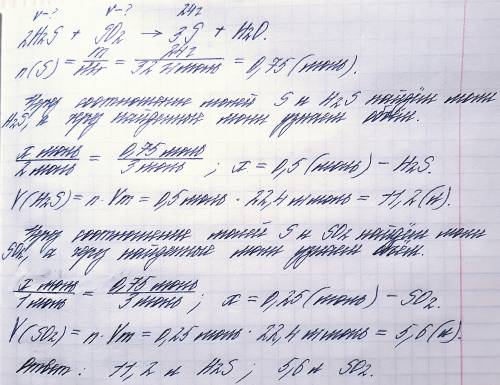 V-? V-? 24г
2H₂S + SO₂ → 3S + H₂O.
n(S) = m/Mr = 24г/32 г/моль = 0,75 (моль).
Через соотношение молей S и H₂S найдём моли
H₂S, а через найденные моли узнаем объём.
x моль/2 моль = 0,75 моль/3 моль ; x = 0,5 (моль) – H₂S.
V(H₂S) = n · Vm = 0,5 моль · 22,4 л/моль = 11,2 (л).
Через соотношение молей S и SO₂ найдём моли
SO₂, а через найденные моли узнаем объём.
x моль/1 моль = 0,75 моль/3 моль ; x = 0,25 (моль) – SO₂.
V(SO₂) = n · Vm = 0,25 моль · 22,4 л/моль = 5,6 (л).
Ответ: 11,2 л H₂S ; 5,6 л SO₂.